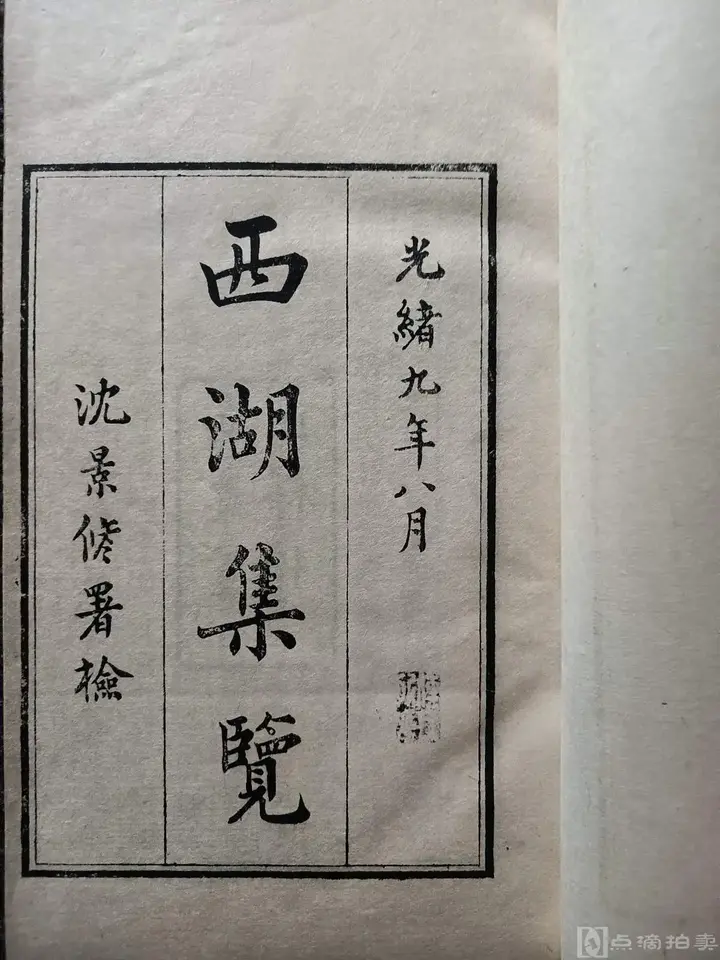 光緒九年八月
西湖集覽
沈景修署檢
点滴拍卖